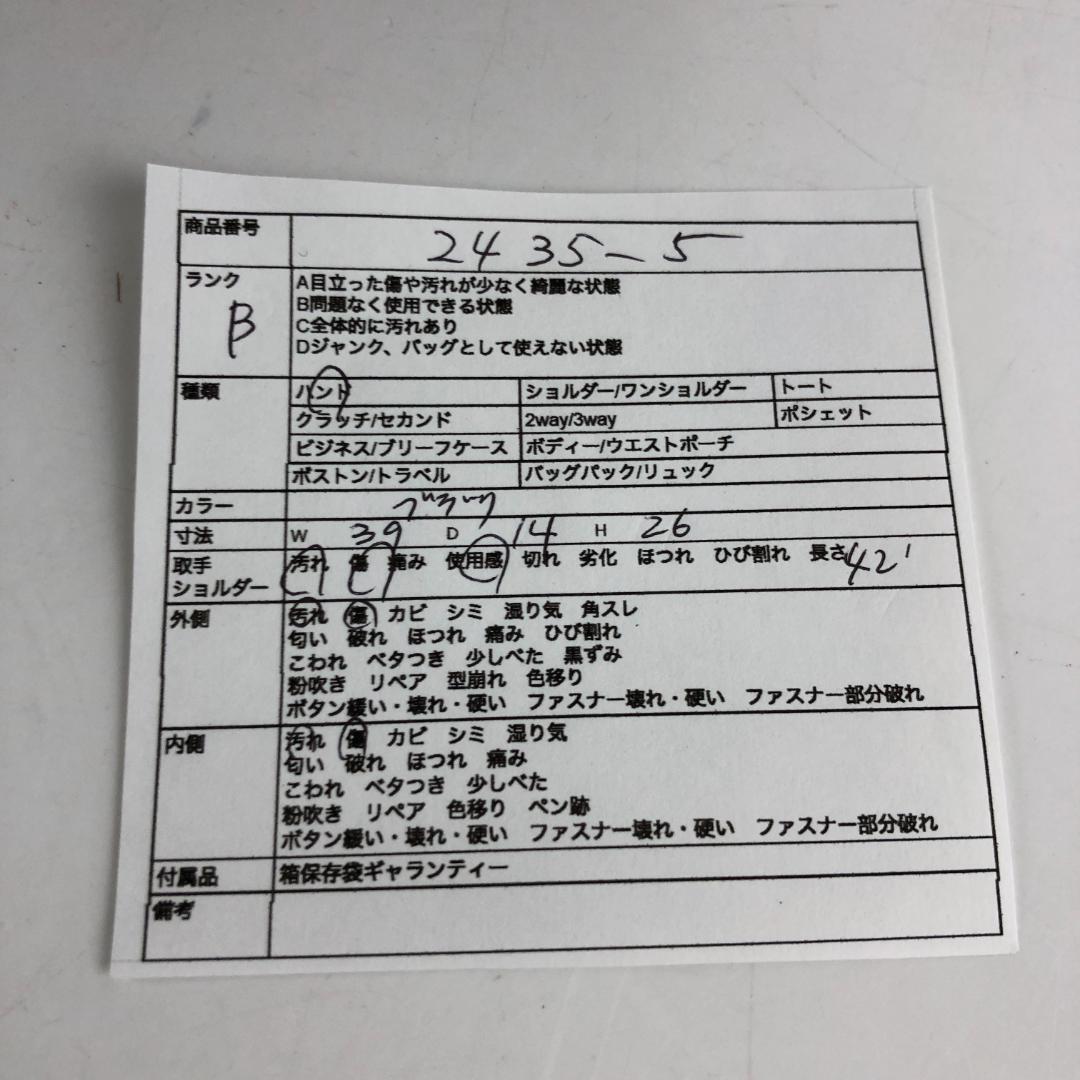 商品番号 2435-5
ランク B
A目立った傷や汚れが少なく綺麗な状態
B問題なく使用できる状態
C全体的に汚れあり
Dジャンク、バッグとして使えない状態
種類 ハンド ショルダー/ワンショルダー トート
クラッチ/セカンド 2way/3way ポシェット
ビジネス/ブリーフケース ボディー/ウエストポーチ
ボストン/トラベル バッグパック/リュック
カラー ブラック
寸法 W 39 D 14 H 26
取手 汚れ 傷 痛み 使用感 切れ 劣化 ほつれ ひび割れ 長さ 42
ショルダー
外側 汚れ 傷 カビ シミ 湿り気 角スレ
匂い 破れ ほつれ 痛み ひび割れ
こわれ ベタつき 少しべた 黒ずみ
粉吹き リペア 型崩れ 色移り
ボタン緩い・壊れ・硬い ファスナー壊れ・硬い ファスナー部分破れ
内側 汚れ 傷 カビ シミ 湿り気
匂い 破れ ほつれ 痛み
こわれ ベタつき 少しべた
粉吹き リペア 色移り ペン跡
ボタン緩い・壊れ・硬い ファスナー壊れ・硬い ファスナー部分破れ
付属品 箱保存袋ギャランティー
備考